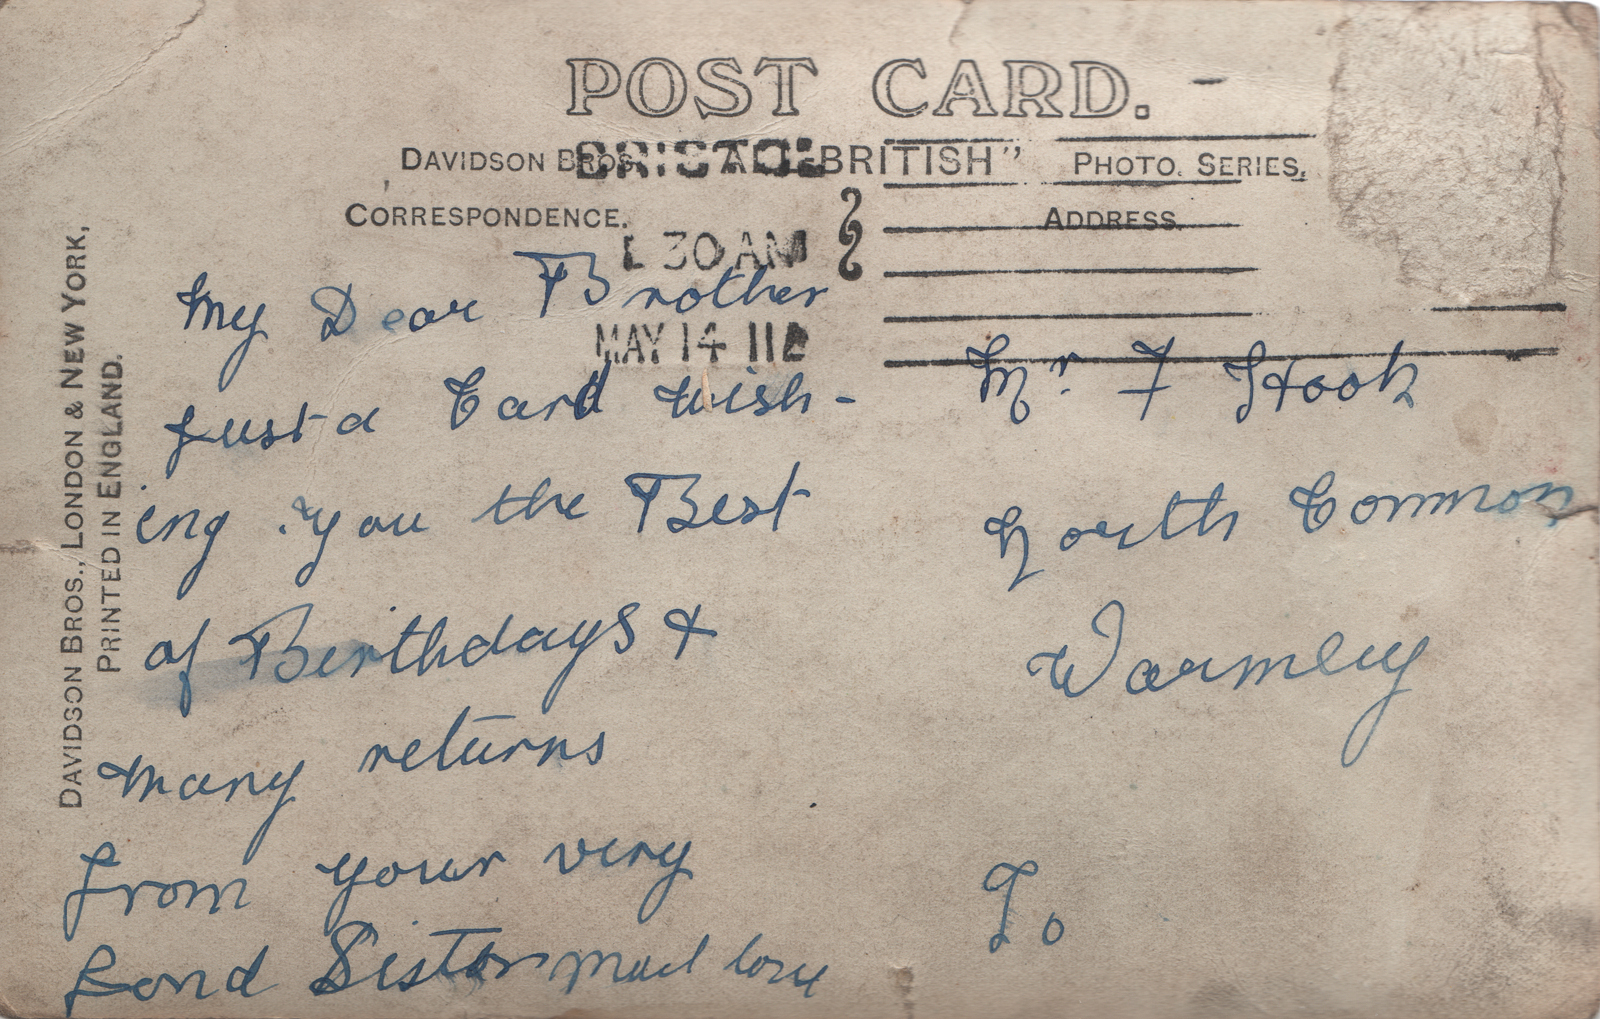 POST CARD.
DAVIDSON BROS. "ALL-BRITISH" PHOTO. SERIES.
BRISTOL
CORRESPONDENCE.
ADDRESS.
30 AM
MAY 14 11
DAVIDSON BROS., LONDON & NEW YORK,
PRINTED IN ENGLAND.
My Dear Brother
Just a Card wish-
ing you the Best
of Birthdays &
many returns
from your very
fond Sister love
Mr. F Hook
North Common
Warmley
To